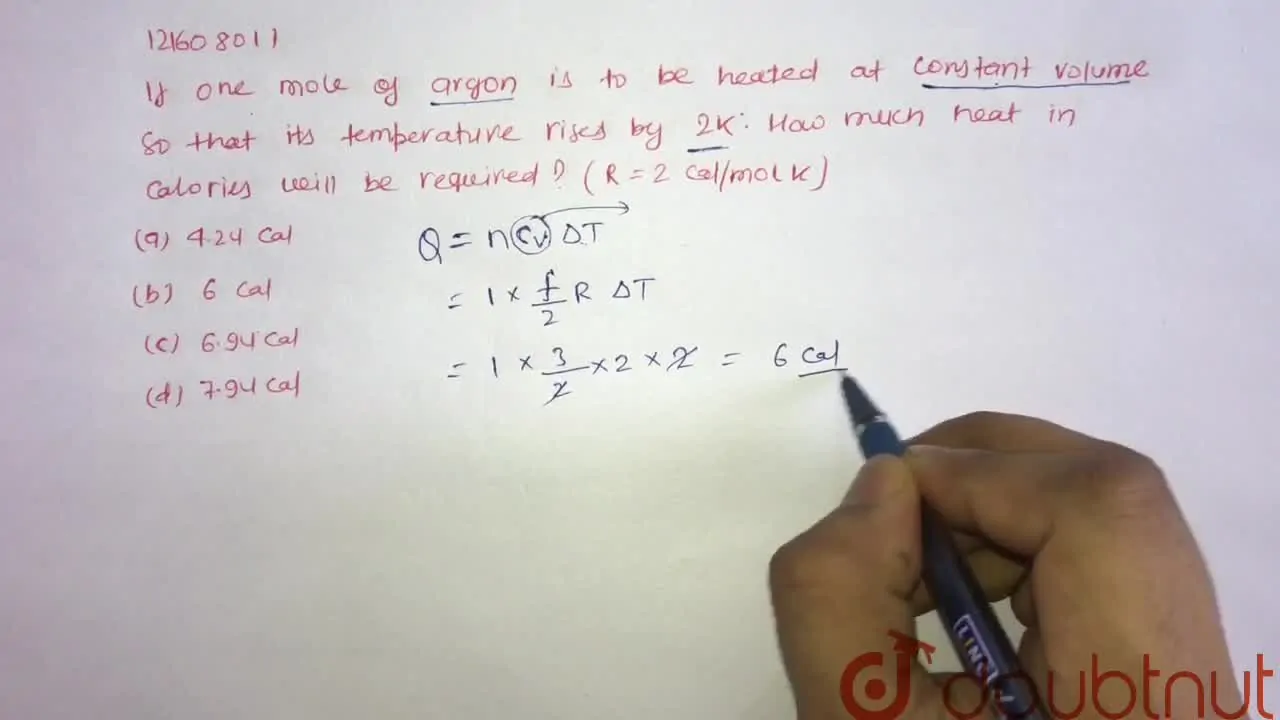 121608011
If one mole of argon is to be heated at constant volume
so that its temperature rises by 2K. How much heat in
calories will be required? (R = 2 Cal/mol K)
(a) 4.24 Cal
(b) 6 Cal
(c) 6.94 Cal
(d) 7.94 Cal
Q = n Cv ΔT
= 1 × f/2 R ΔT
= 1 × 3/2 × 2 × 2 = 6 Cal
LINC
doubtnut